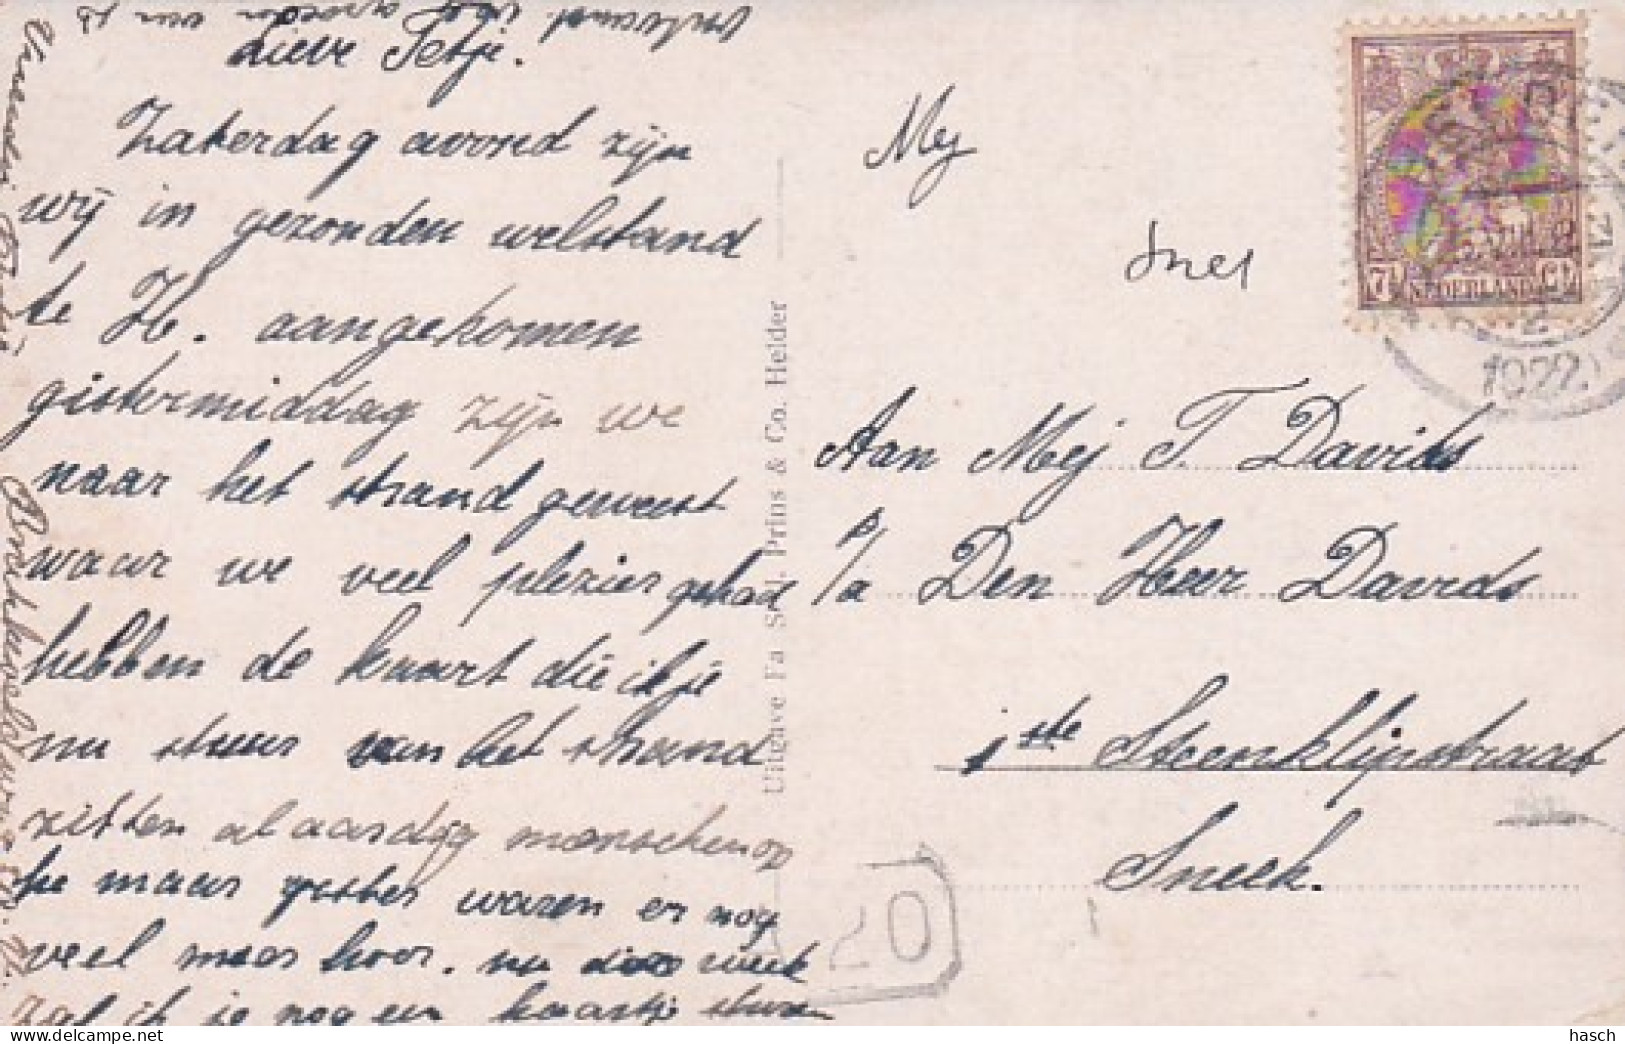 Lieve Tetje.
Zaterdag avond zijn
wij in gezonden welstand
te H. aangekomen
gistermiddag zijn we
naar het strand geweest
waar we veel plezier gehad
hebben de kaart die ik je
nu stuur van het strand
zitten al aardig menschen op
te maar gister waren er nog
veel meer hoor. nu deze week
zal ik je nog een kaartje sturen
Uitgave Fa S. &. J. Prins & Co. Helder
Mej
Snee
7½ NEDERLAND Ct
1922
Aan Mej T. Davids
p/a Den Heer Davids
1ste Steenklipstraat
Sneek.
70
hasch